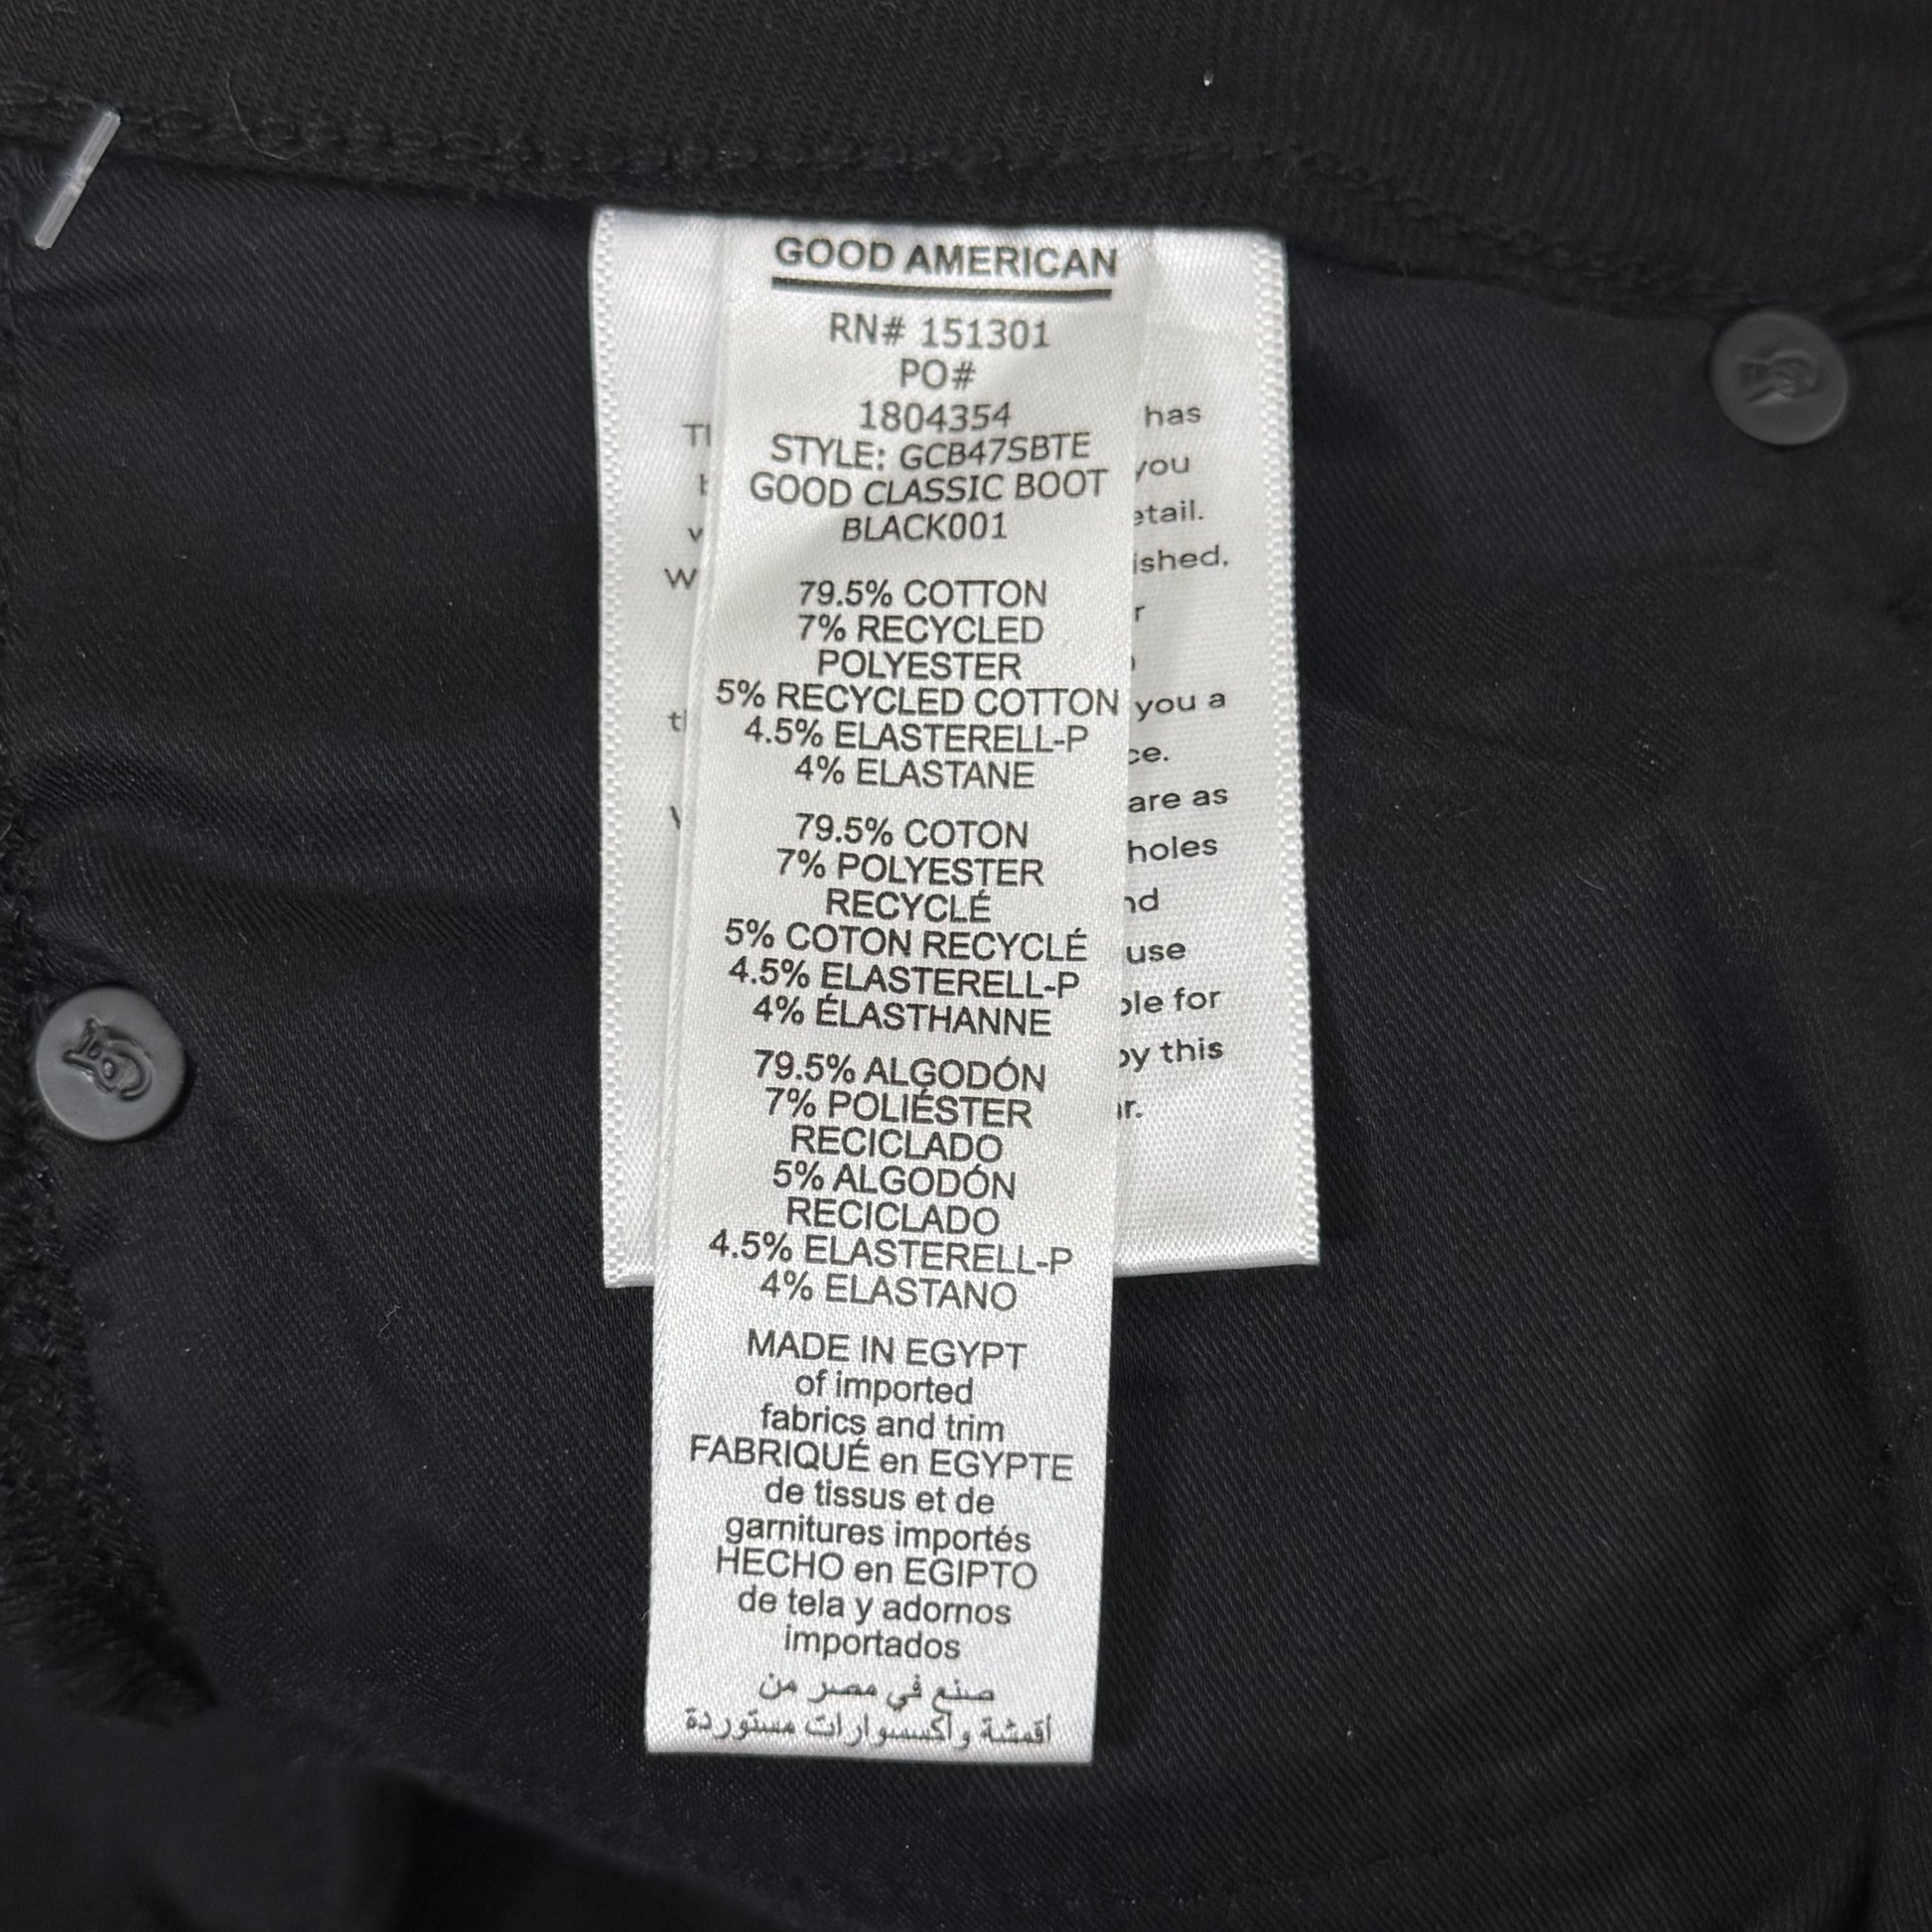 GOOD AMERICAN
RN# 151301
PO#
1804354
STYLE: GCB47SBTE
GOOD CLASSIC BOOT
BLACK001
79.5% COTTON
7% RECYCLED
POLYESTER
5% RECYCLED COTTON
4.5% ELASTERELL-P
4% ELASTANE
79.5% COTON
7% POLYESTER
RECYCLÉ
5% COTON RECYCLÉ
4.5% ELASTERELL-P
4% ÉLASTHANNE
79.5% ALGODÓN
7% POLIÉSTER
RECICLADO
5% ALGODÓN
RECICLADO
4.5% ELASTERELL-P
4% ELASTANO
MADE IN EGYPT
of imported
fabrics and trim
FABRIQUÉ en EGYPTE
de tissus et de
garnitures importés
HECHO en EGIPTO
de tela y adornos
importados
صنع في مصر من
أقمشة وأكسسوارات مستوردة
has
you
you a
are as
holes
use
for
this